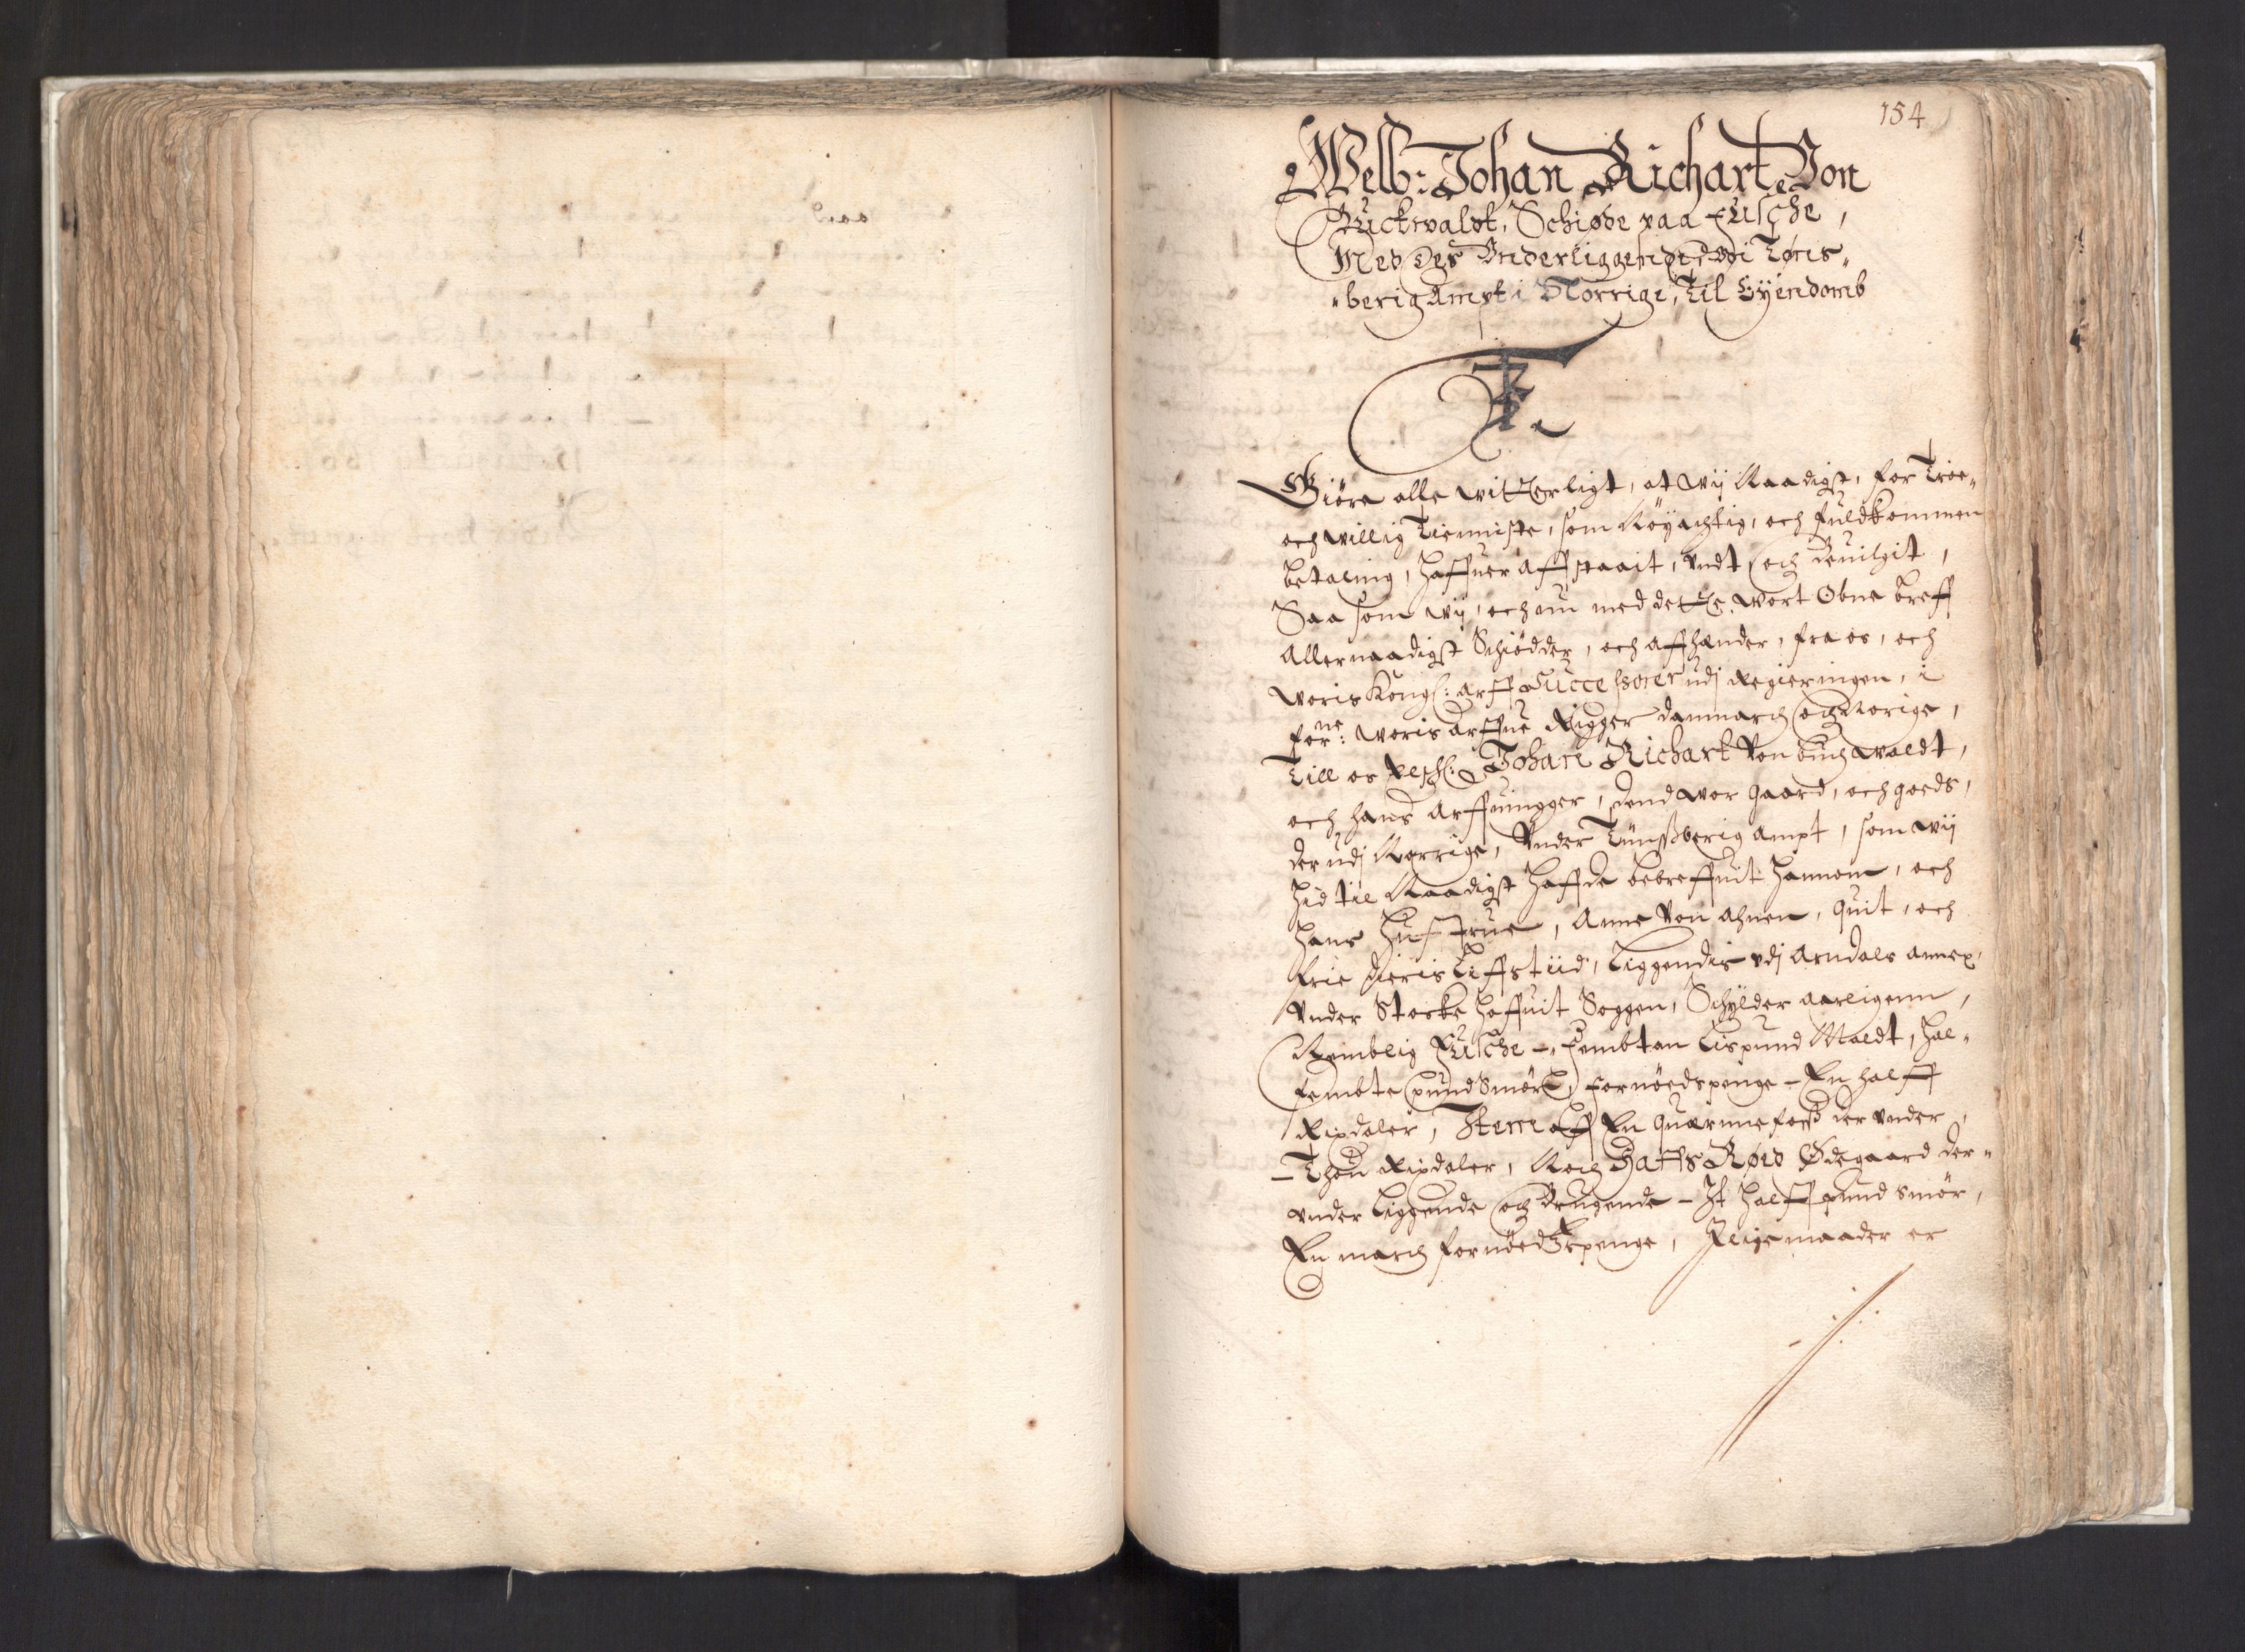 154
Welb: Johan Richart Von
Buckwaldt, Schiøde paa Fulsche,
Med des Underliggende udi Tøns„
„berig Ampt i Norrige, til Eyendomb
F 3.
Giöre alle witterligt, at wij Naadigst, for troe„
och willig Tienniste, som Nöyachtig, och fuldkommen
betaling, haffuer affstaait, undt och beuilgit,
Saa som wij, och nu med dette wort Obne breff
Allernaadigst Schiödder, och affhænder, fra os, och
woris Kongl: arff Successorer udj Regieringen, i
forne: woris arffue Rigger Danmarch och Norige,
Till os elschl: Johan Richart Von buchwaldt,
och hans arffuingger, dend wor gaard, och goeds,
der udj Norrige, Under Tünsberig ampt, som wij
hid til Naadigst haffde bebreffuit hannom, och
hans hustrue, Anne Von Ahnen, quit, och
frie dieris Liffs tiid, Liggendis udj Arndals annex,
under Stocke hoffuit Soggen, Schylder aarligenn,
Nemblig Fulsche -, fembtan Lispund Maldt, hal„
fembte pund Smör, fornöedspenge - En halff
Rixdaler, Item aff En quærnnefoss der under,
- Thou Rixdaler, Noch Haffs Røed Ödegaard der„
under liggende och brugende - It halff pund Smör,
En march fornöedtzpenge, J lige maader er